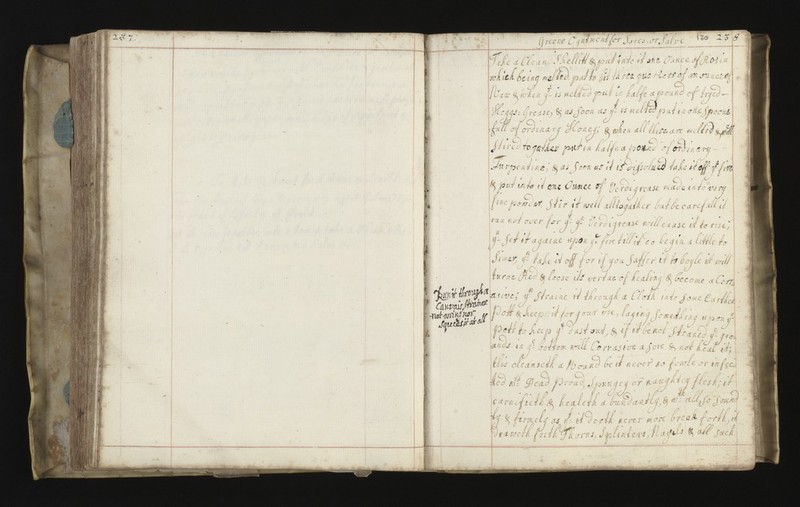 237.
Greene Oyntment for Sores or Salve 120 238
Take a Cleane Skellett & put into it one Ounce of Rosin
which being melted put to it three quarters of an ounce of
Wax & when yt is melted put in halfe a pound of tryed
Hoggs Grease, & as soon as yt is melted put in one spoone
full of ordinary Honey; & when all these are melted & well
stired together put in halfe a pound of ordinary
Turpentine; & as soon as it is dissolued take it off ye fire
& put into it one Ounce of Verdigrease made into very
fine powder Stir it well alltogether but be carefull it
run not over for ye Verdigrease will cause it to rise;
yn set it againe upon ye fire till it begin a little to
Simer, yn take it off for if you suffer it to boyle it will
turne Red & loose its vertue of healing & become a Corr
asive; yn Straine it through a Cloth into some Earthen
Pott & keep it for your use, laying something upon ye
Pott to keep ye dust out, & if it be not Strained ye gro
ands in ye bottom will Corrasive a sore & not heal it;
this cleanseth a Wound be it never so foule or infec
ted wth Dead Bloud, Spungey or naughty flesh; it
carnifieth & healeth abundantly, & wth all so sound
ly & firmely as yt it dooth never more break forth, it
draweth forth Thorns, Splinters, Nayls & all such
Run it through a
Canvais Strainer
not
squeeze it at all